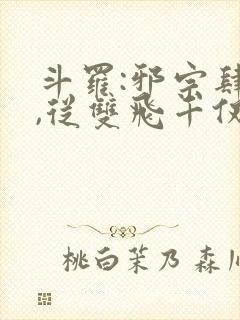 斗羅:邪宗肆
,從雙飛千仞
桃白茉乃 森川